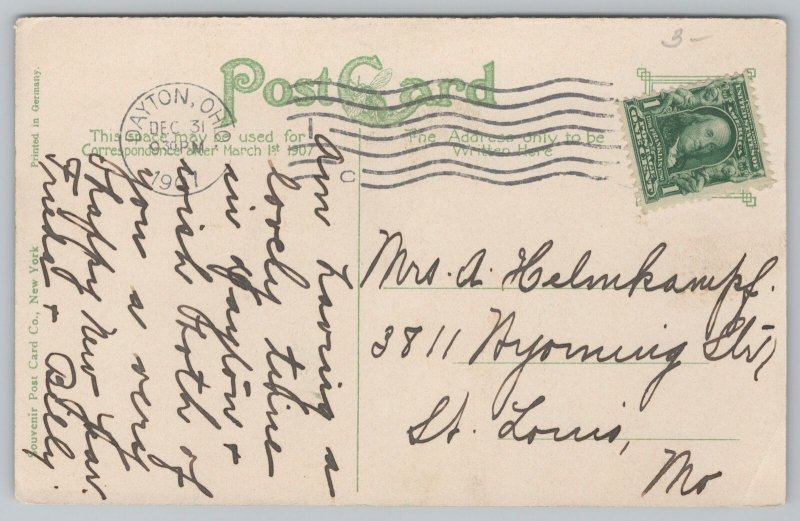 3-
Post Card
DAYTON, OHIO
DEC 31
PM
1907
1
C
This space may be used for
Correspondence after March 1st 1907
The Address only to be
Written Here
Printed in Germany.
Souvenir Post Card Co., New York
1
1
Am having a
lovely time
in Dayton &
wish both of
you a very
Happy New Year.
Frieda & Billy.
Mrs. A. Helmkampf.
3811 Wyoming Str,
St. Louis,
Mo